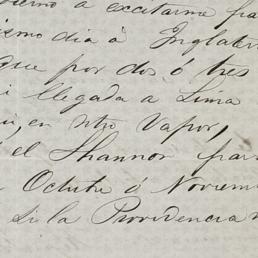 a excitarme pa
mismo dia à Inglater
que por dos ó tres
i llegada a Lima
en ntro Vapor,
el Shannon para
Octubre ó Noviem
si la Providencia